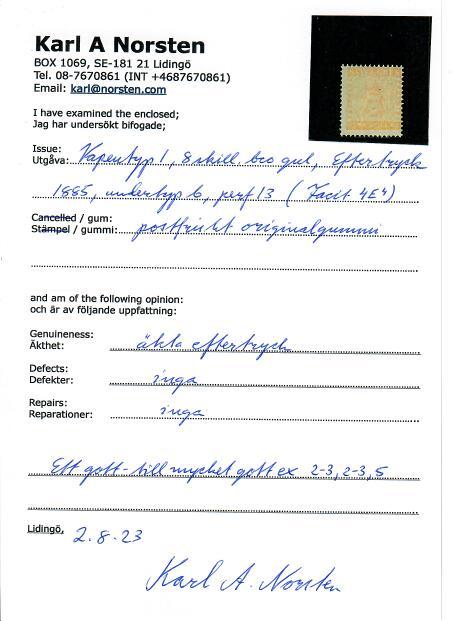 Karl A Norsten
BOX 1069, SE-181 21 Lidingö
Tel. 08-7670861 (INT +4687670861)
Email: karl@norsten.com
I have examined the enclosed;
Jag har undersökt bifogade;
Issue:
Utgåva: Vapentyp 1, 8 skill. bco gul, Eftertryck
1885, undertyp b, perf 13 (Facit 4E4)
Cancelled / gum:
Stämpel / gummi: postfriskt originalgummi
and am of the following opinion:
och är av följande uppfattning:
Genuineness:
Äkthet: äkta eftertryck
Defects:
Defekter: inga
Repairs:
Reparationer: inga
Ett gott- till mycket gott ex 2-3, 2-3, 5
Lidingö, 2.8.23
Karl A. Norsten